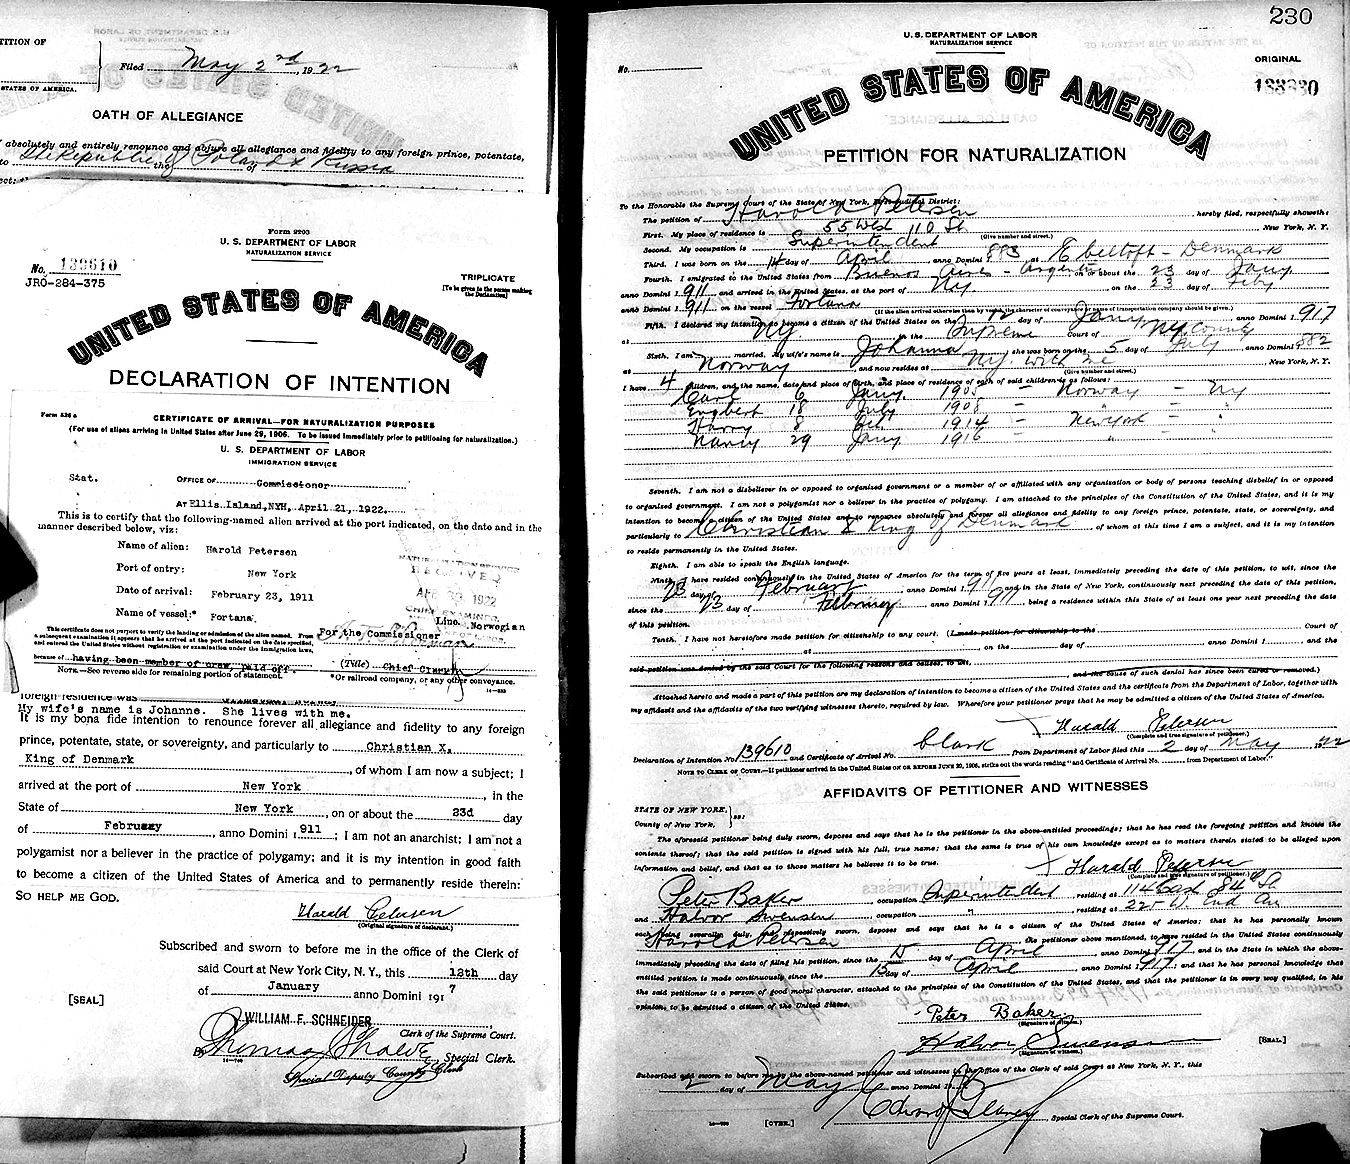 TITION OF
Filed May 2nd, 1922
STATES OF AMERICA.
OATH OF ALLEGIANCE
absolutely and entirely renounce and abjure all allegiance and fidelity to any foreign prince, potentate,
to The Republic of Poland & Russia
Form 2203
U. S. DEPARTMENT OF LABOR
NATURALIZATION SERVICE
No. 139610
JRO-284-375
TRIPLICATE
[To be given to the person making the Declaration]
UNITED STATES OF AMERICA
DECLARATION OF INTENTION
Form 526a
CERTIFICATE OF ARRIVAL—FOR NATURALIZATION PURPOSES
(For use of aliens arriving in United States after June 29, 1906. To be issued immediately prior to petitioning for naturalization.)
U. S. DEPARTMENT OF LABOR
IMMIGRATION SERVICE
Stat.
OFFICE OF Commissioner
AT Ellis Island, NYH, April 21, 1922.
This is to certify that the following-named alien arrived at the port indicated, on the date and in the
manner described below, viz:
Name of alien: Harold Petersen
Port of entry: New York
Date of arrival: February 23, 1911
Name of vessel:* Fortuna Line. Norwegian
NATURALIZATION SERVICE
RECEIVED
1922
CHIEF EXAMINER
This certificate does not purport to verify the landing or admission of the alien named. From
a subsequent examination it appears that he arrived at the port indicated on the date specified,
and entered the United States without registration or examination under the immigration laws,
because of having been member of crew, paid off.
For the Commissioner
(Title) Chief Clerk
NOTE.—See reverse side for remaining portion of statement.
*Or railroad company, or any other conveyance.
foreign residence was
My wife's name is Johanne. She lives with me.
It is my bona fide intention to renounce forever all allegiance and fidelity to any foreign
prince, potentate, state, or sovereignty, and particularly to Christian X,
King of Denmark, of whom I am now a subject; I
arrived at the port of New York, in the
State of New York, on or about the 23d day
of February, anno Domini 1911; I am not an anarchist; I am not a
polygamist nor a believer in the practice of polygamy; and it is my intention in good faith
to become a citizen of the United States of America and to permanently reside therein:
SO HELP ME GOD.
Harald Petersen
(Original signature of declarant.)
Subscribed and sworn to before me in the office of the Clerk of
said Court at New York City, N. Y., this 12th day
of January anno Domini 1917
[SEAL]
WILLIAM F. SCHNEIDER
Clerk of the Supreme Court.
By Thomas, Special Clerk.
Special Deputy County Clerk
230
U. S. DEPARTMENT OF LABOR
NATURALIZATION SERVICE
No.
ORIGINAL
UNITED STATES OF AMERICA
PETITION FOR NATURALIZATION
To the Honorable the Supreme Court of the State of New York, First Judicial District:
The petition of Harold Petersen, hereby filed, respectfully showeth:
First. My place of residence is 55 West 110 St New York, N. Y.
(Give number and street.)
Second. My occupation is Superintendent
Third. I was born on the 14 day of April anno Domini 1883 at Ebeltoft - Denmark
Fourth. I emigrated to the United States from Buenos Aires - Argentin on or about the 23 day of Jany
anno Domini 1911 and arrived in the United States, at the port of NY on the 23 day of Feby
anno Domini 1911 on the vessel Fortuna
(If the alien arrived otherwise than by vessel, the character of conveyance or name of transportation company should be given.)
Fifth. I declared my intention to become a citizen of the United States on the 12 day of Jany anno Domini 1917
at NY. in the Supreme Court of NY. County
Sixth. I am married. My wife's name is Johanna she was born on the 5 day of July anno Domini 1882
at Norway and now resides at NY with me New York, N. Y.
(Give number and street.)
I have 4 children, and the name, date and place of birth, and place of residence of each of said children is as follows:
Carl 6 Jany 1905 - Norway - NY
Engbert 18 July 1908 - " - "
Harry 8 1914 - New York - "
Nancy 29 Jany 1916 - " "
Seventh. I am not a disbeliever in or opposed to organized government or a member of or affiliated with any organization or body of persons teaching disbelief in or opposed
to organized government. I am not a polygamist nor a believer in the practice of polygamy. I am attached to the principles of the Constitution of the United States, and it is my
intention to become a citizen of the United States and to renounce absolutely and forever all allegiance and fidelity to any foreign prince, potentate, state, or sovereignty, and
particularly to Christian X King of Denmark of whom at this time I am a subject, and it is my intention
to reside permanently in the United States.
Eighth. I am able to speak the English language.
Ninth. I have resided continuously in the United States of America for the term of five years at least, immediately preceding the date of this petition, to wit, since the
23 day of February, anno Domini 1911 and in the State of New York, continuously next preceding the date of this petition,
since the 23 day of February anno Domini 1911, being a residence within this State of at least one year next preceding the date
of this petition.
Tenth. I have not heretofore made petition for citizenship to any court. (I made petition for citizenship to the Court of
at on the day of anno Domini 1 and the
said petition was denied by the said Court for the following reasons and causes, to wit,
and the cause of such denial has since been cured or removed.)
Attached hereto and made a part of this petition are my declaration of intention to become a citizen of the United States and the certificate from the Department of Labor, together with
my affidavit and the affidavits of the two verifying witnesses thereto, required by law. Wherefore your petitioner prays that he may be admitted a citizen of the United States of America.
Harald Petersen
(Complete and true signature of petitioner.)
Declaration of Intention No. 139610 and Certificate of Arrival No. blank from Department of Labor filed this 2 day of May 1922
NOTE TO CLERK OF COURT.—If petitioner arrived in the United States ON OR BEFORE JUNE 29, 1906, strike out the words reading "and Certificate of Arrival No. from Department of Labor."
AFFIDAVITS OF PETITIONER AND WITNESSES
STATE OF NEW YORK,
County of New York, ss:
The aforesaid petitioner being duly sworn, deposes and says that he is the petitioner in the above-entitled proceedings; that he has read the foregoing petition and knows the
contents thereof; that the said petition is signed with his full, true name; that the same is true of his own knowledge except as to matters therein stated to be alleged upon
information and belief, and that as to those matters he believes it to be true.
Harald Petersen
(Complete and true signature of petitioner.)
Peter Baker, occupation Superintendent, residing at 114 East 84 St
and Halvor Swensen, occupation ", residing at 225 W. End Av
each being severally, duly, and respectively sworn, deposes and says that he is a citizen of the United States of America; that he has personally known
Harold Petersen the petitioner above mentioned, to have resided in the United States continuously
immediately preceding the date of filing his petition, since the 15 day of April anno Domini 1917, and in the State in which the above-
entitled petition is made continuously since the 15 day of April anno Domini 1917, and that he has personal knowledge that
the said petitioner is a person of good moral character, attached to the principles of the Constitution of the United States, and that the petitioner is in every way qualified, in his
opinion, to be admitted a citizen of the United States.
Peter Baker
(Signature of witness.)
Halvor Swensen
(Signature of witness.)
[SEAL.]
Subscribed and sworn to before me by the above-named petitioner and witnesses in the office of the Clerk of said Court at New York, N. Y., this
2 day of May anno Domini 19
Special Clerk of the Supreme Court.
[OVER.]